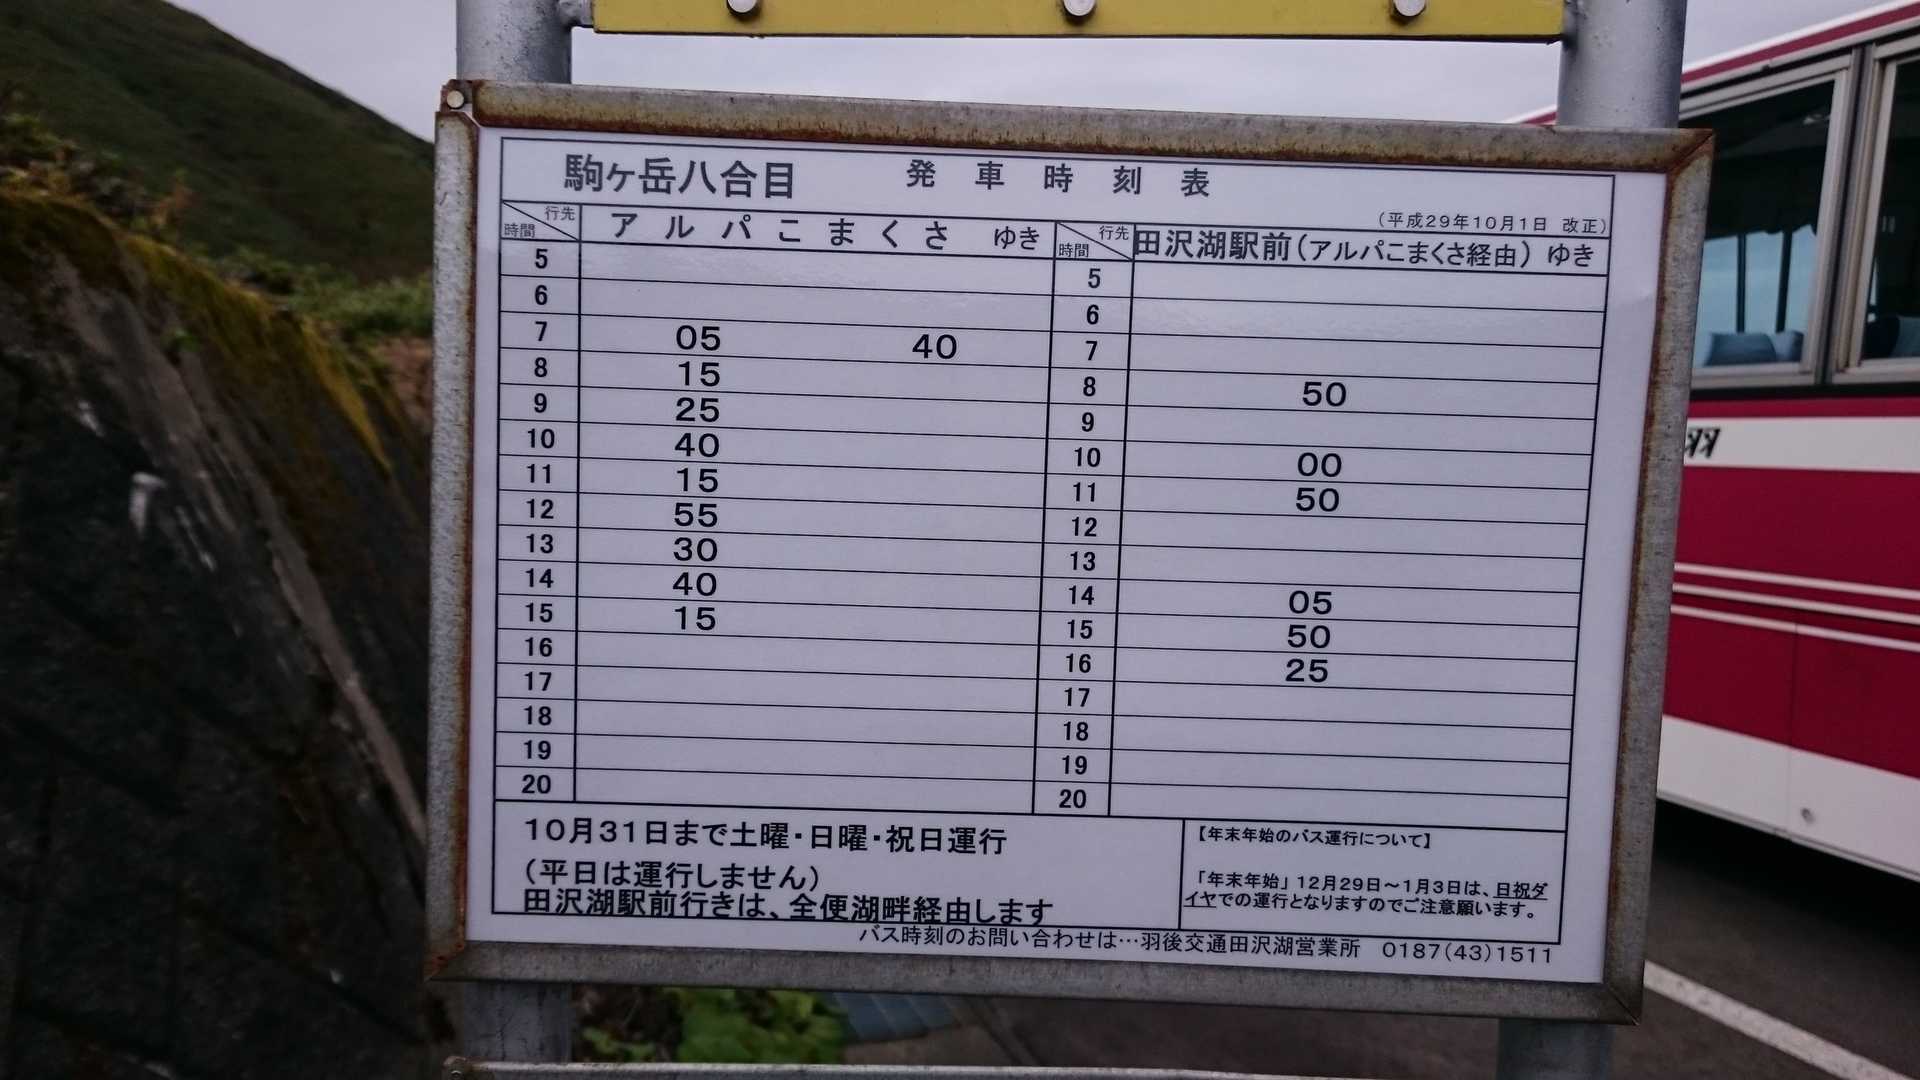 駒ヶ岳八合目 発車時刻表
(平成29年10月1日 改正)
時間 行先 アルパこまくさ ゆき 時間 行先 田沢湖駅前(アルパこまくさ経由) ゆき
5 5
6 6
7 05 40 7
8 15 8 50
9 25 9
10 40 10 00
11 15 11 50
12 55 12
13 30 13
14 40 14 05
15 15 15 50
16 16 25
17 17
18 18
19 19
20 20
10月31日まで土曜・日曜・祝日運行
(平日は運行しません)
田沢湖駅前行きは、全便湖畔経由します
【年末年始のバス運行について】
「年末年始」12月29日~1月3日は、日祝ダ
イヤでの運行となりますのでご注意願います。
バス時刻のお問い合わせは…羽後交通田沢湖営業所 0187(43)1511
羽